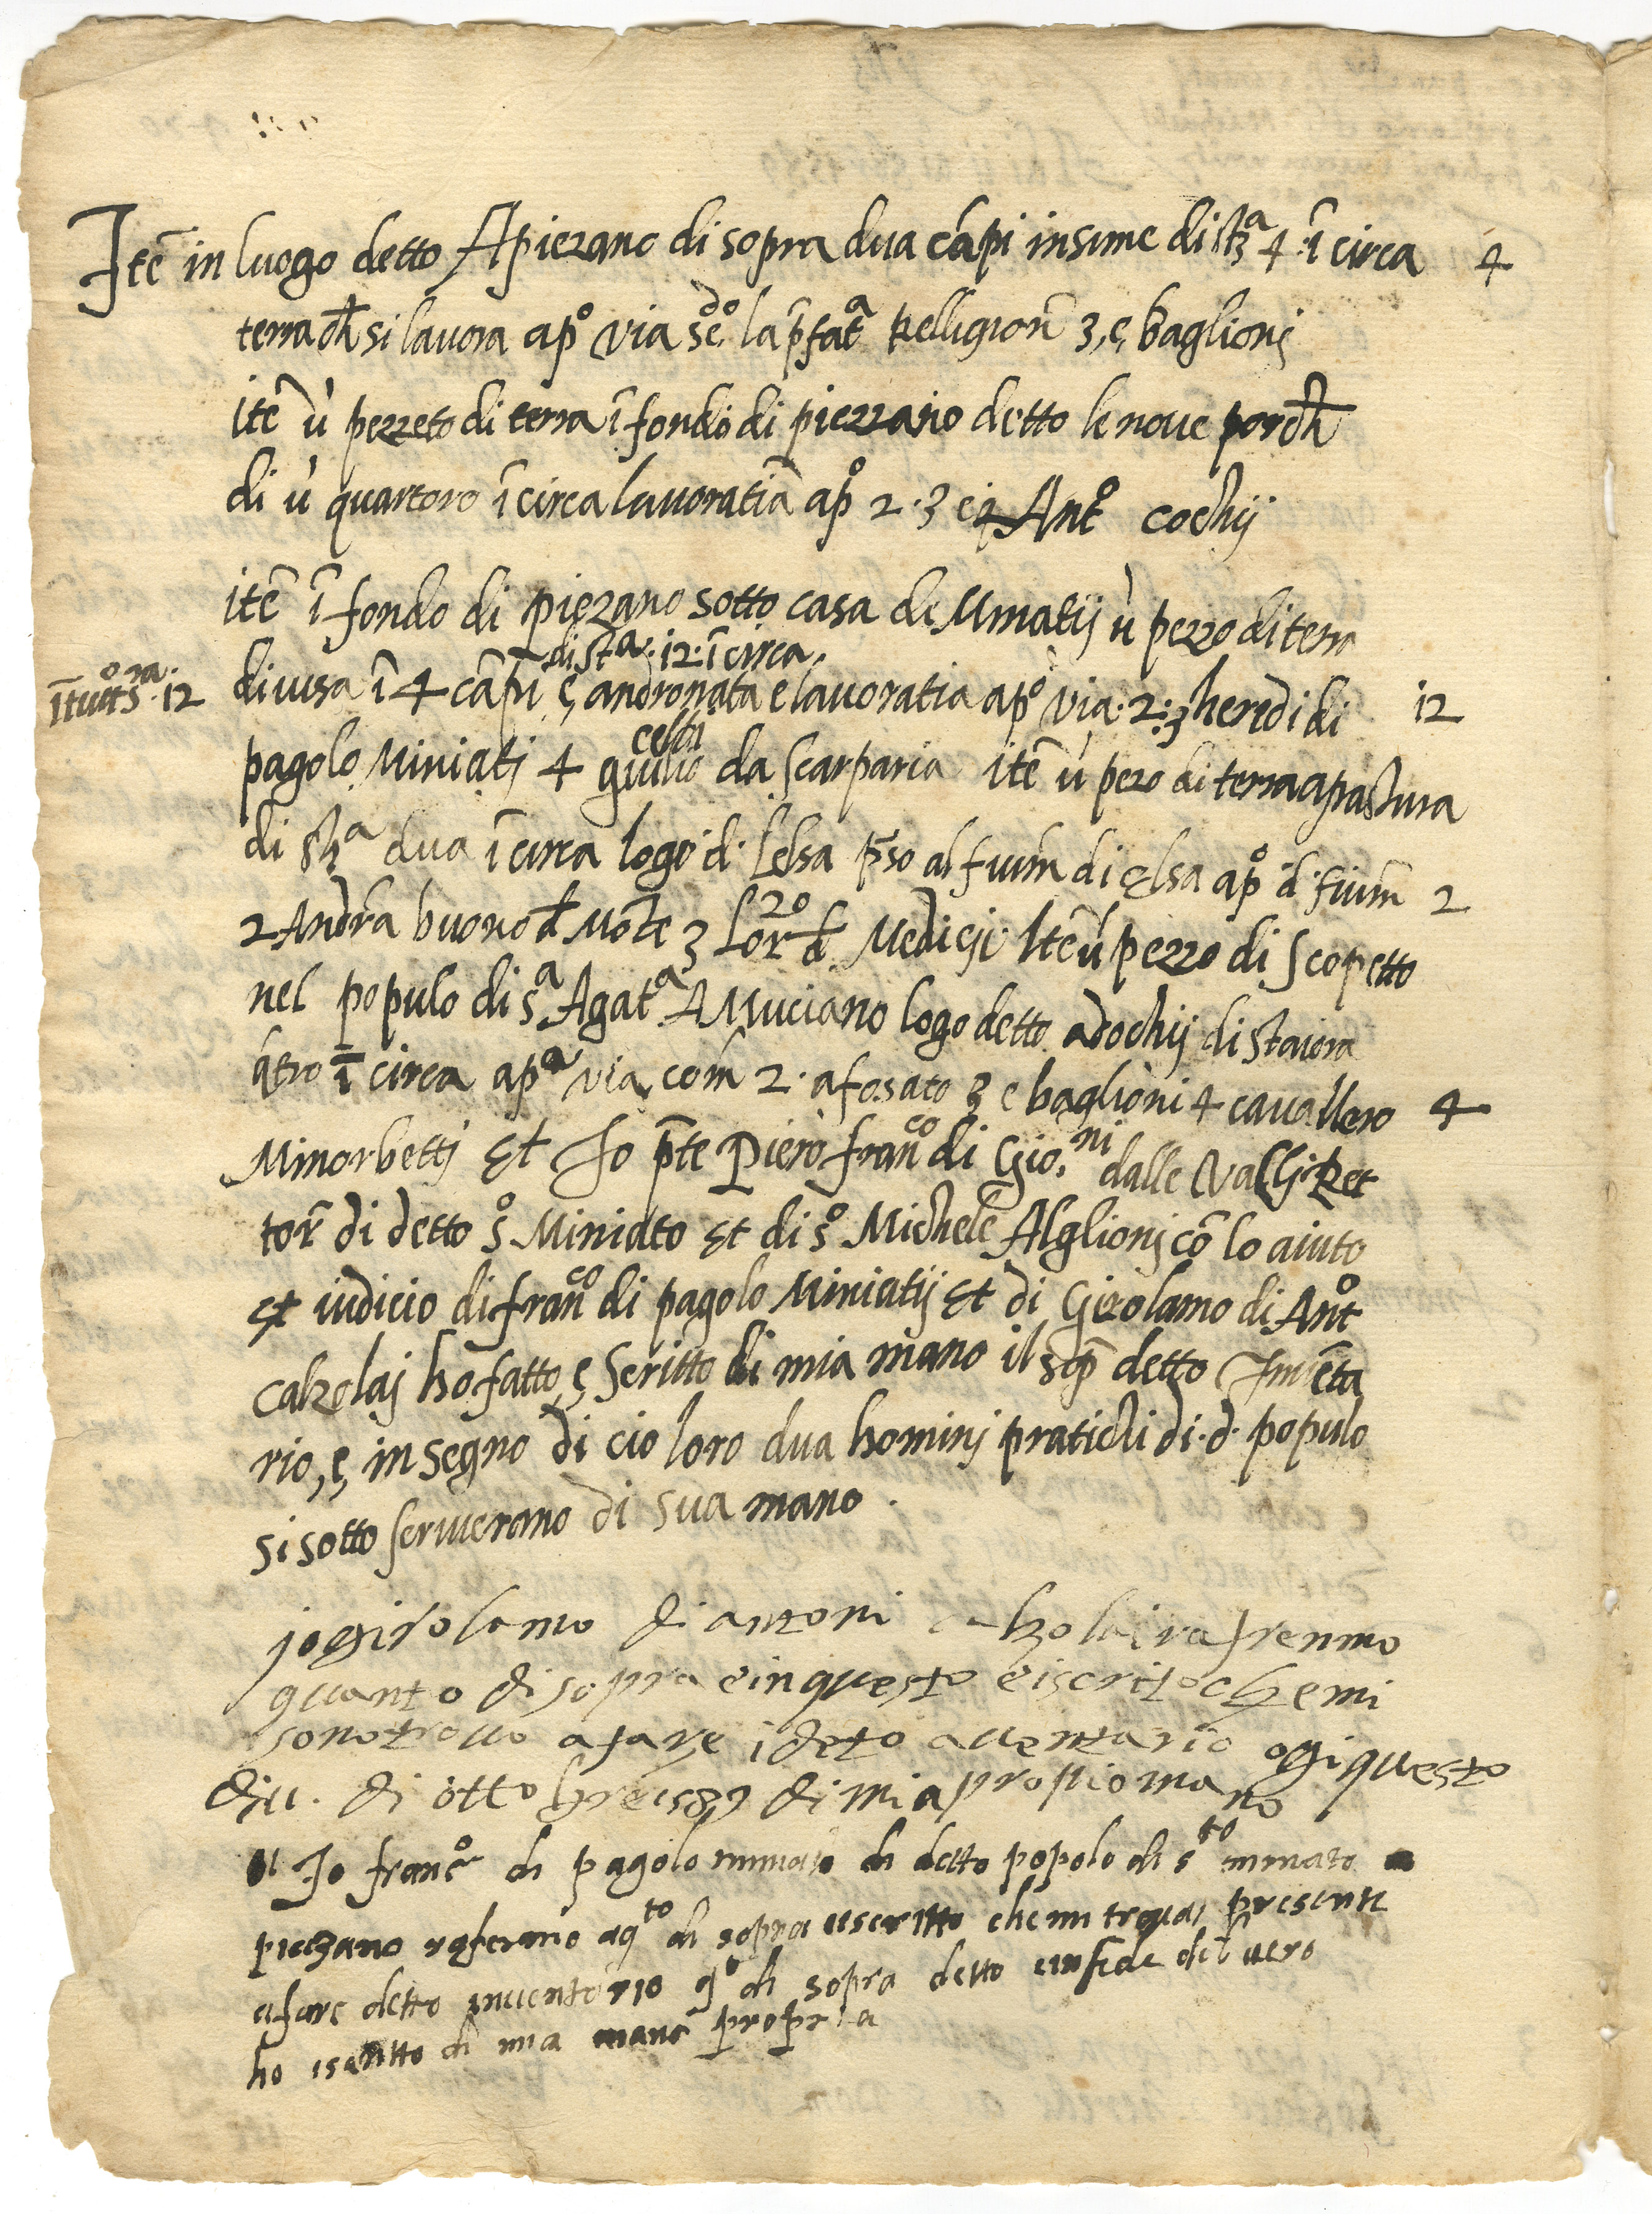 Itē in luogo detto Apiezano di sopra dua cāpi insime di stª 4 ī circa 4
terra ch si lavora apº via scdº la p̄fatª Relligion̄ 3, e, baglionj
itē ù pezzeto di terra ī fondo di piezzano detto le nove porch
di ù quartoro ī circa lavoratia apº 2 · 3 e 4 Antº cochij
itē ī fondo di piezano sotto casa de Mniatij ù pezzo di terra
di stª · 12 · ī circa
ītutto sra · 12 divisa ī 4 cāpi e andronata e lavoratia apº via · 2 : 3 heredi di 12
pagolo Miniatj 4 giulio celli da Scarparia itē ù pezo di terra apastura
di stª dua ī circa logo d. Lelsa p̄so al fium̄ di elsa apº d. fium̄ 2
2 Andr̄a buono d Mōte 3 Lorzo d Medicji Itē ù pezzo di Scopetto
nel populo di sª Agatª A Muciano logo detto adochij di staiora
qtro ī circa apª via com̄ 2 · a fosato 3 e baglioni 4 cavallero 4
Minorbettj Et Io p̄te Piero franco di Gio.ni dalle Vallj Ret
tor̄ di detto sº Miniato Et di sº Michele Alglionj cō lo aiuto
et iudicio di franco di pagolo Miniatij Et di Girolamo di Antº
calzolaj ho fatto, e, Scritto di mia mano il sop̄ detto Invēta
rio, e, in segno di cio loro dua hominj pratichi di · d · populo
si sotto scriverano di sua mano ·
io girolamo di antoni calzolai rafermo
quanto di sopra e in questo e iscrito che mi
sono trovo a fare i deto aventario ogi questo
di 11 · di ottobre 1589 di mia propio mano
Io francº di pagolo miniati di detto popolo di sto miniato a
piezano rafermo a qto di sopra e iscritto che mi trovai presente
a fare detto inventorio qº di sopra detto e in fede del vero
ho iscritto di mia mano propria